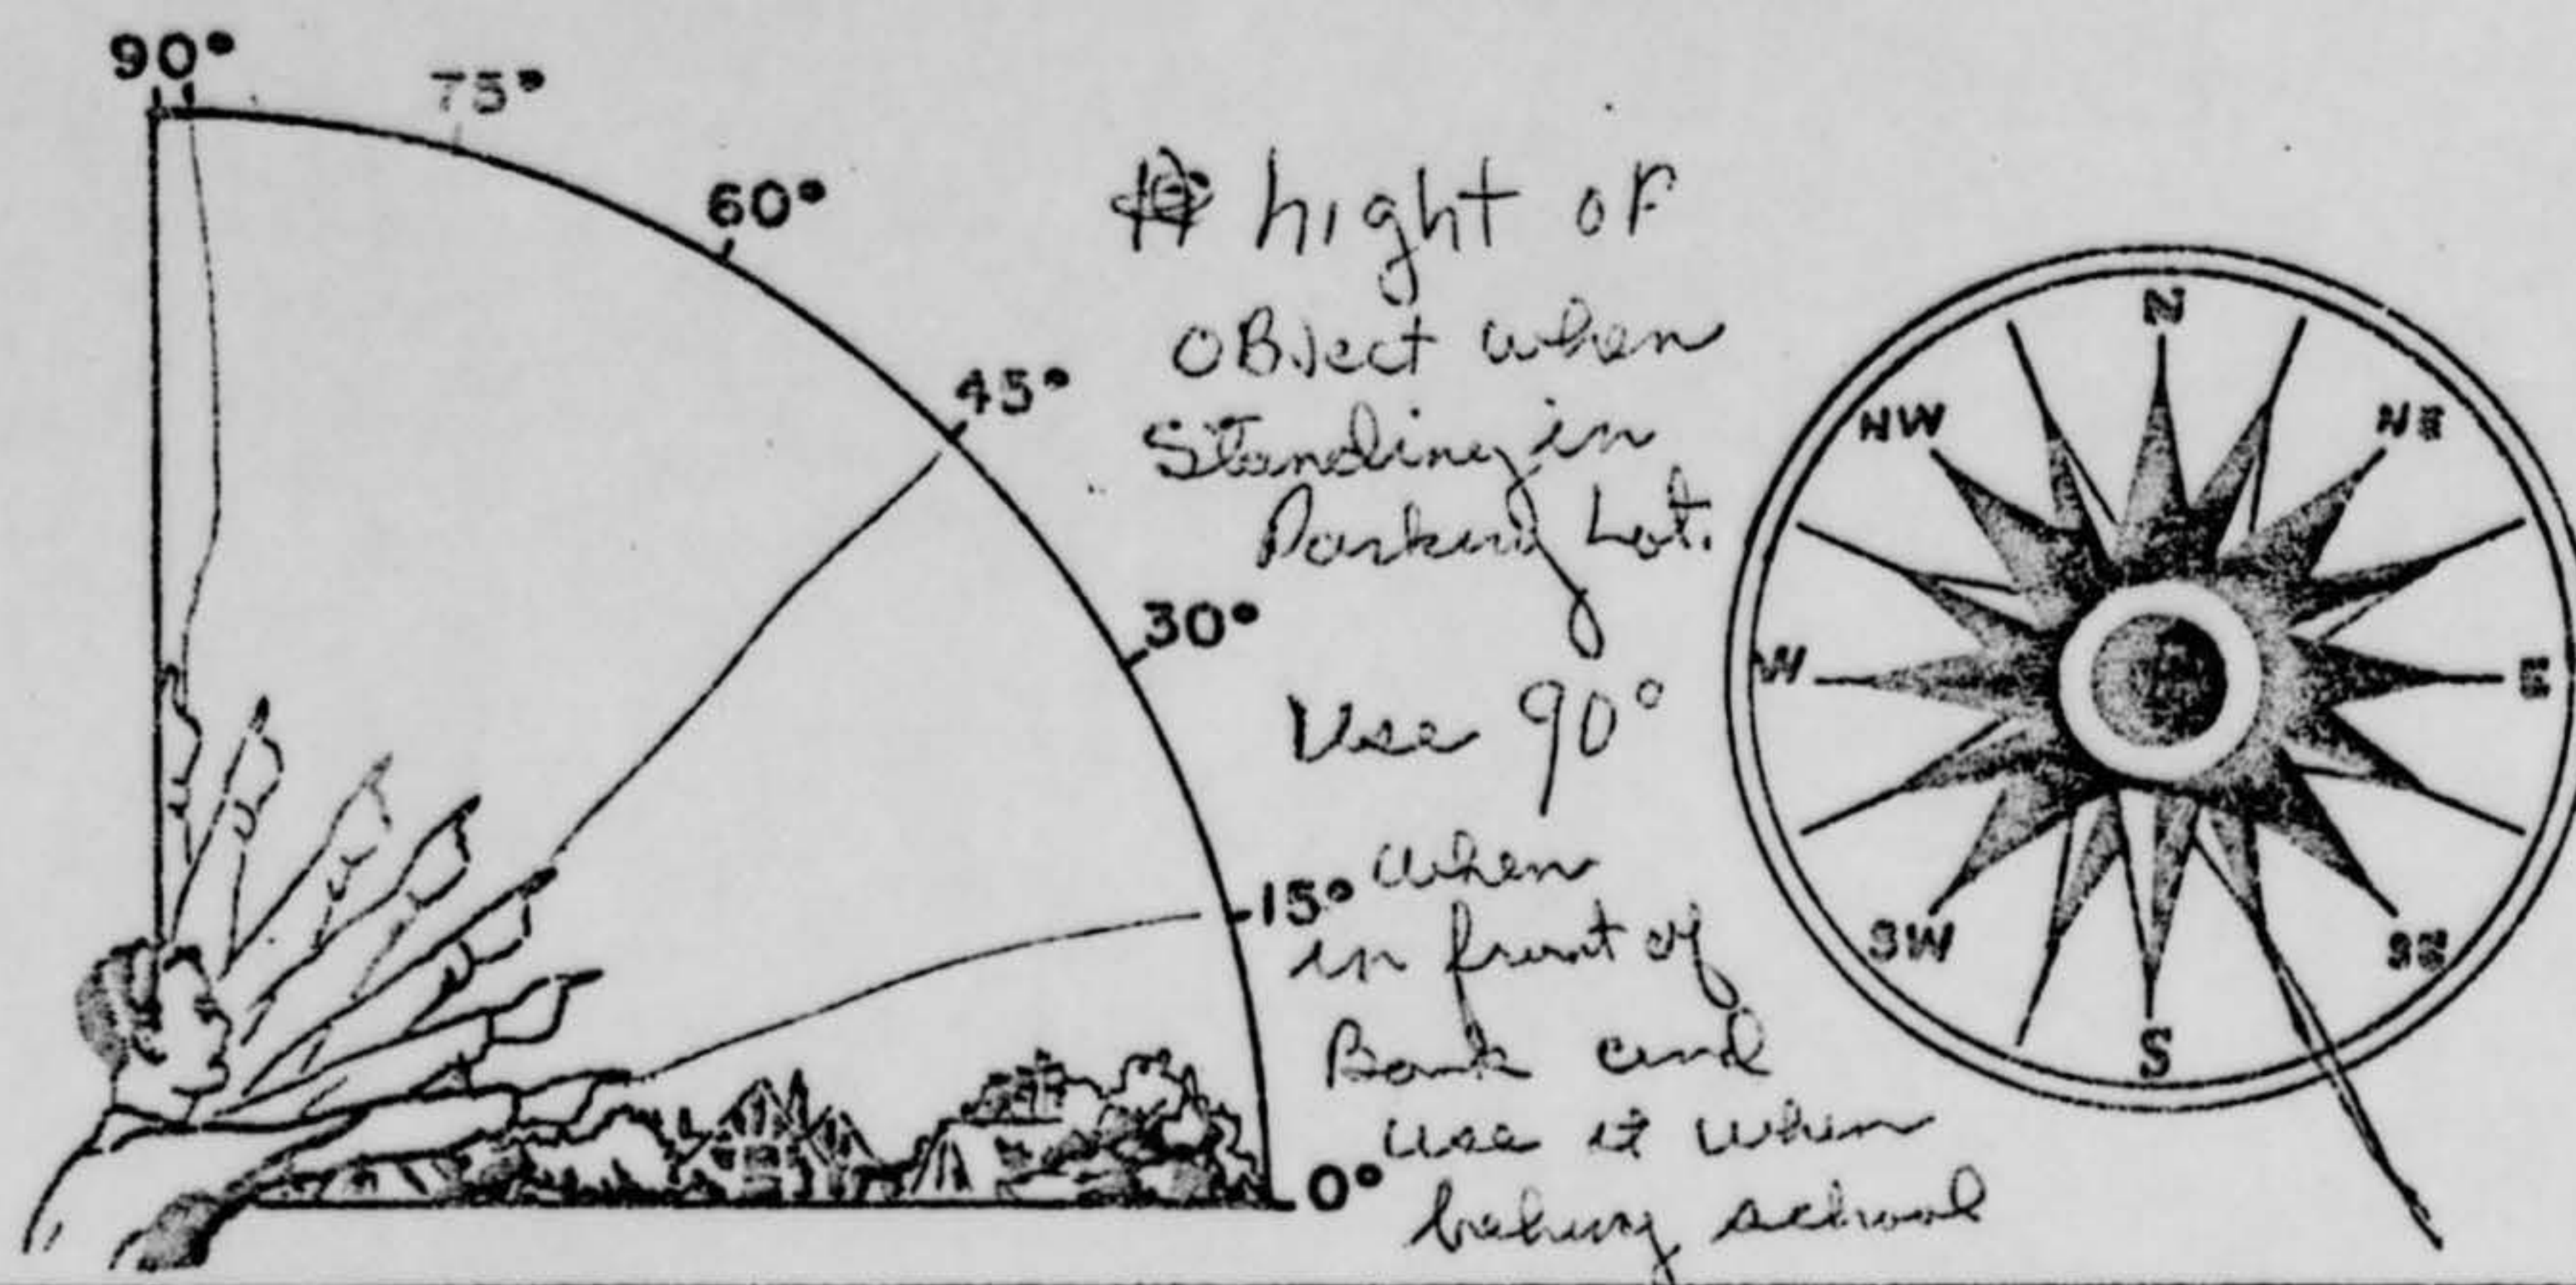 90°
75°
60°
45°
30°
15°
0°
hight of
OBject when
Standing in
Parking Lot.
Use 90°
when
in front of
Bank and
use it when
school
N
NE
E
SE
S
SW
W
NW